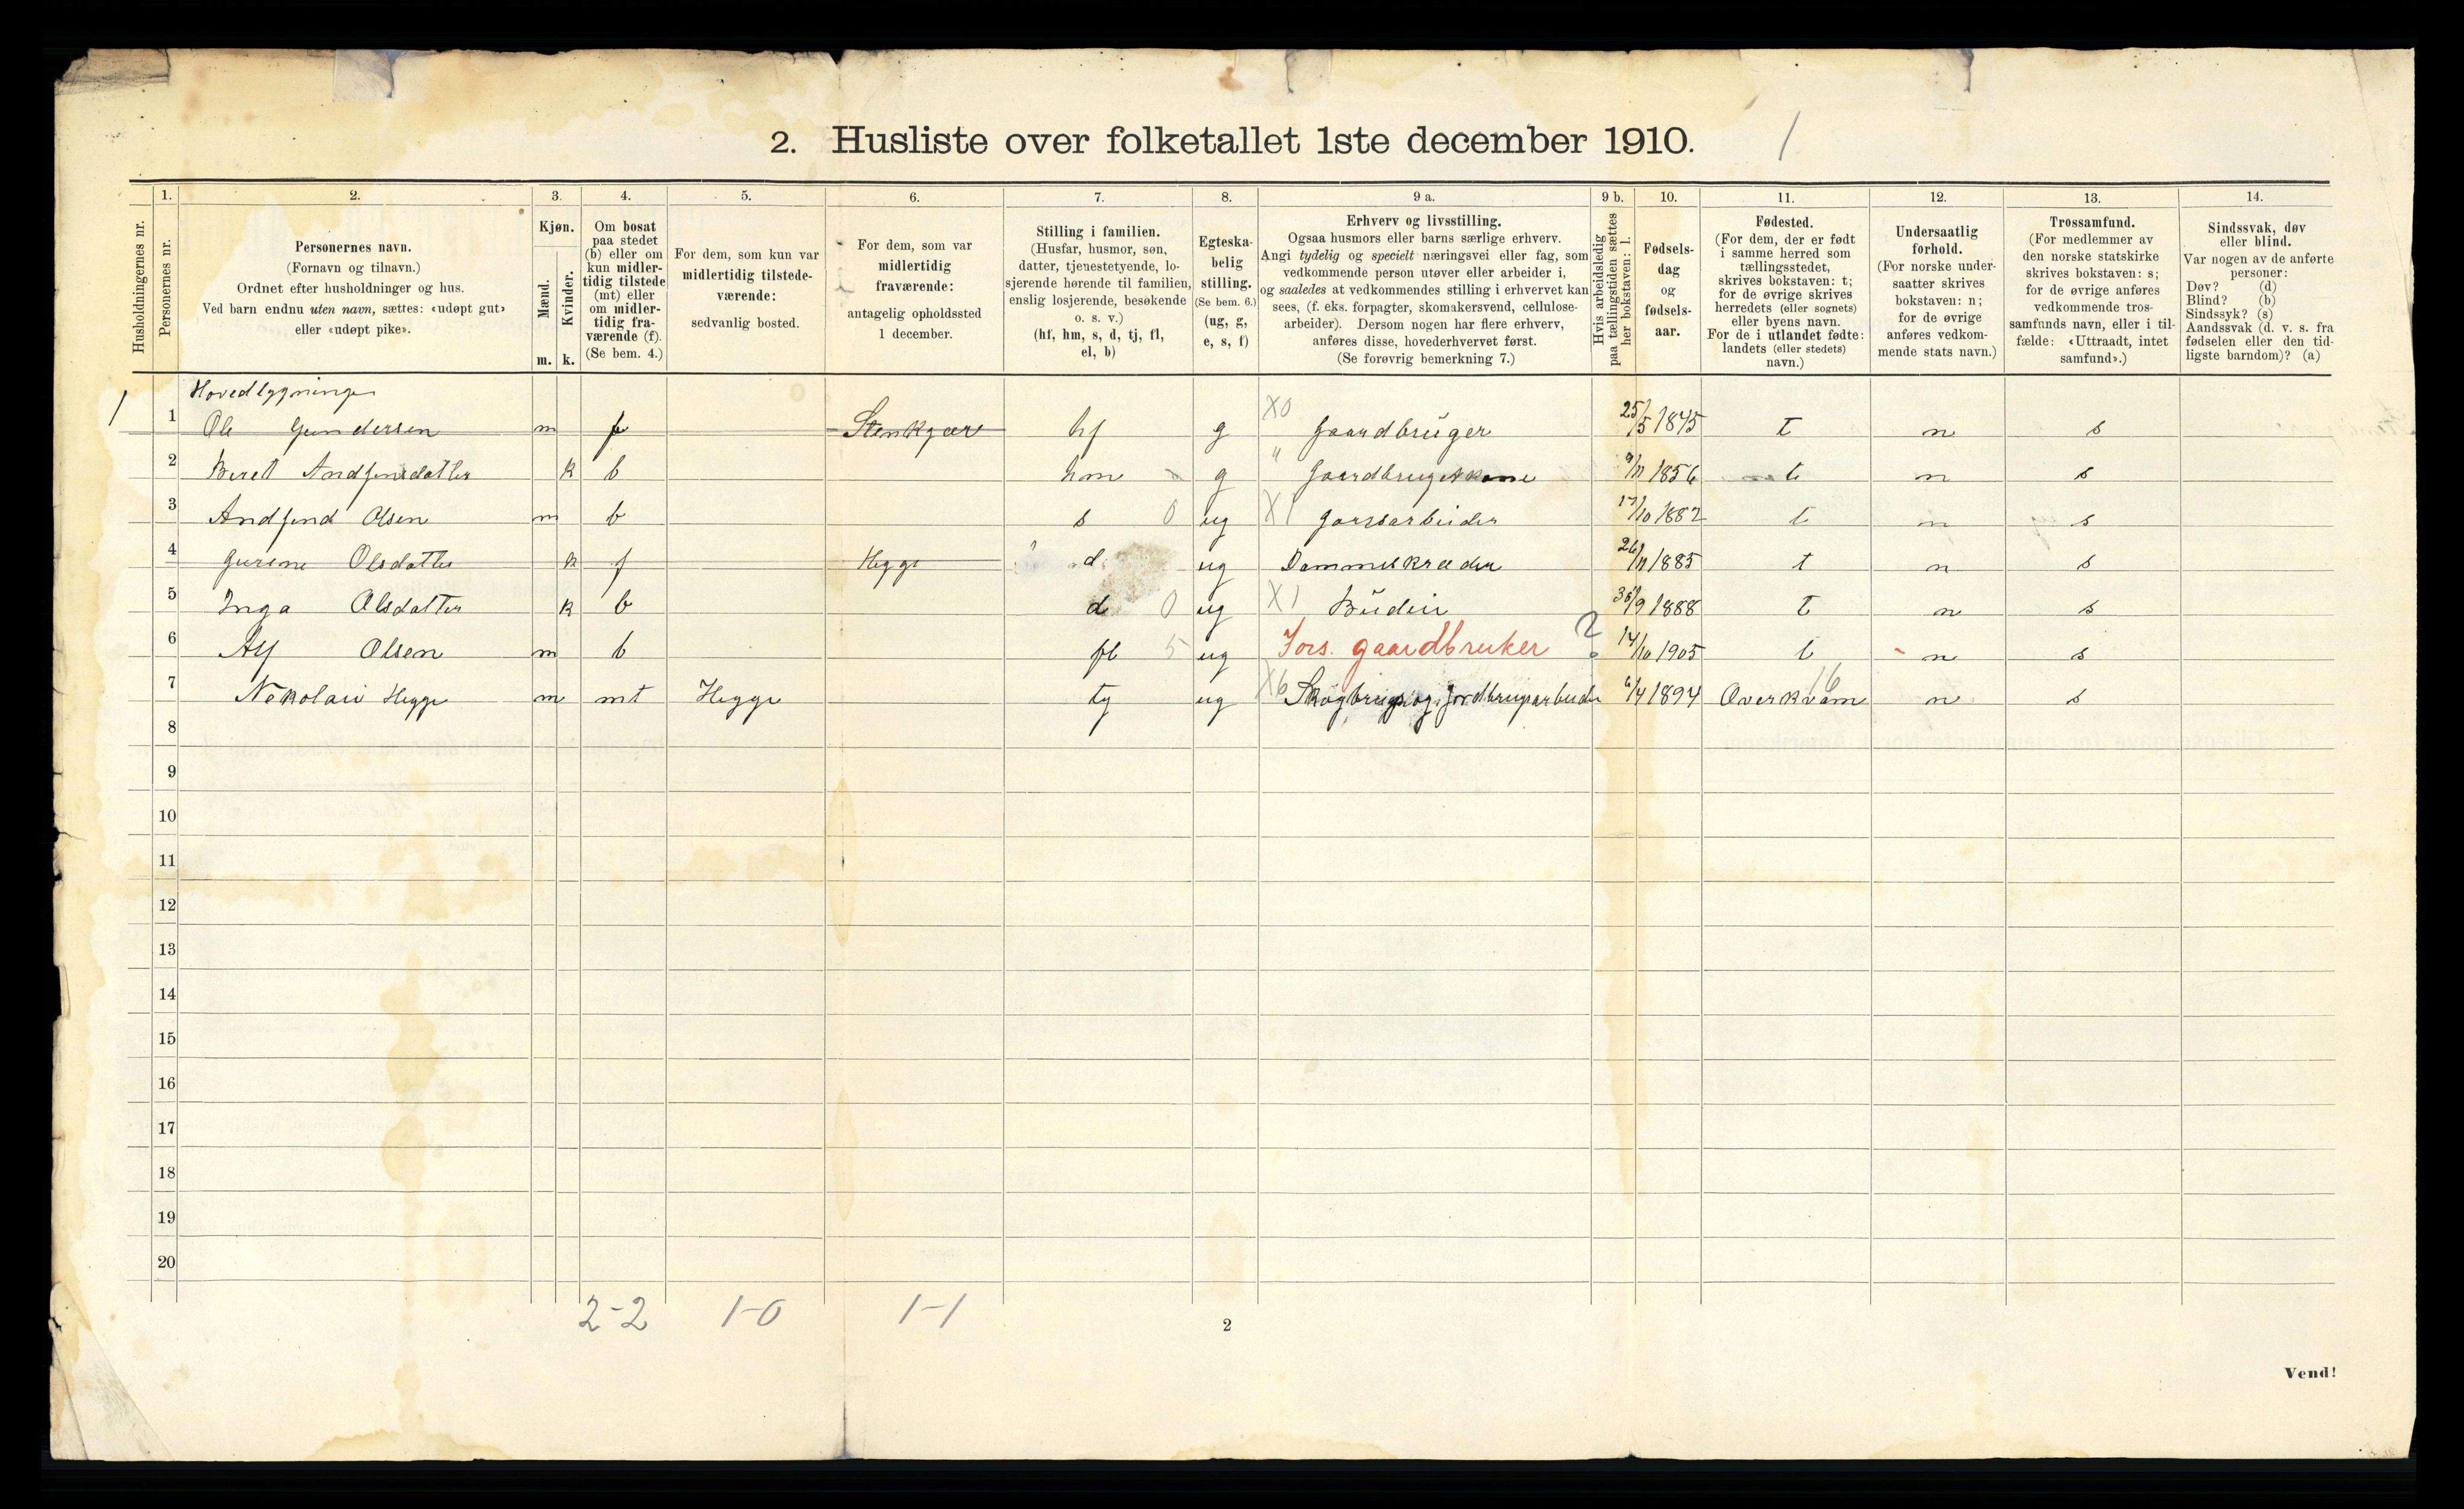 2. Husliste over folketallet 1ste december 1910. 1
Husholdningernes nr.
1.
Personernes nr.
2.
Personernes navn.
(Fornavn og tilnavn.)
Ordnet efter husholdninger og hus.
Ved barn endnu uten navn, sættes: «udøpt gut»
eller «udøpt pike».
3.
Kjøn.
Mænd.
m.
Kvinder.
k.
4.
Om bosat
paa stedet
(b) eller om
kun midler-
tidig tilstede
(mt) eller
om midler-
tidig fra-
værende (f).
(Se bem. 4.)
5.
For dem, som kun var
midlertidig tilstede-
værende:
sedvanlig bosted.
6.
For dem, som var
midlertidig
fraværende:
antagelig opholdssted
1 december.
7.
Stilling i familien.
(Husfar, husmor, søn,
datter, tjenestetyende, lo-
sjerende hørende til familien,
enslig losjerende, besøkende
o. s. v.)
(hf, hm, s, d, tj, fl,
el, b)
8.
Egteska-
belig
stilling.
(Se bem. 6.)
(ug, g,
e, s, f)
9 a.
Erhverv og livsstilling.
Ogsaa husmors eller barns særlige erhverv.
Angi tydelig og specielt næringsvei eller fag, som
vedkommende person utøver eller arbeider i,
og saaledes at vedkommendes stilling i erhvervet kan
sees, (f. eks. forpagter, skomakersvend, cellulose-
arbeider). Dersom nogen har flere erhverv,
anføres disse, hovederhvervet først.
(Se forøvrig bemerkning 7.)
9 b.
Hvis arbeidsledig
paa tællingstiden sættes
her bokstaven: l.
10.
Fødsels-
dag
og
fødsels-
aar.
11.
Fødested.
(For dem, der er født
i samme herred som
tællingsstedet,
skrives bokstaven: t;
for de øvrige skrives
herredets (eller sognets)
eller byens navn.
For de i utlandet fødte:
landets (eller stedets)
navn.)
12.
Undersaatlig
forhold.
(For norske under-
saatter skrives
bokstaven: n;
for de øvrige
anføres vedkom-
mende stats navn.)
13.
Trossamfund.
(For medlemmer av
den norske statskirke
skrives bokstaven: s;
for de øvrige anføres
vedkommende tros-
samfunds navn, eller i til-
fælde: «Uttraadt, intet
samfund».)
14.
Sindssvak, døv
eller blind.
Var nogen av de anførte
personer:
Døv? (d)
Blind? (b)
Sindssyk? (s)
Aandssvak (d. v. s. fra
fødselen eller den tid-
ligste barndom)? (a)
Hovedbygningen
1 1 Ole Gundersen m f Stenkjær hf g X0 Gaardbruger 25/5 1845 t n s
2 Beret Andfinsdatter k b hm g " Gaardbrugerkone 9/11 1856 t n s
3 Andfind Olsen m b s 0 ug X1 Gaarsarbeider 17/10 1882 t n s
4 Gurine Olsdatter k f Hegge d ug Dammeskræder 26/11 1885 t n s
5 Inga Olsdatter k b d 0 ug X1 Budeie 30/9 1888 t n s
6 Alf Olsen m b fl 5 ug Fors. gaardbruker ? 14/10 1905 t n s
7 Nekolai Hegge m mt Hegge ty ug X6 Skogbrugs og Jordbrugsarbeider 6/4 1894 Overkvam 16 n s
8
9
10
11
12
13
14
15
16
17
18
19
20
2-2 1-0 1-1
2
Vend!